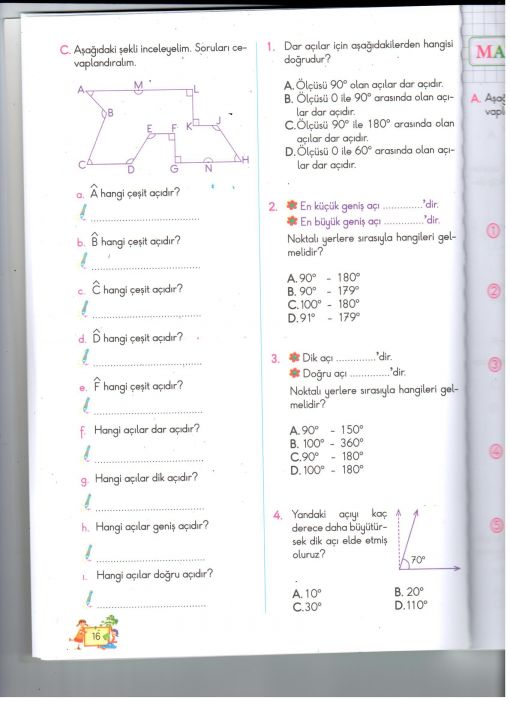 C. Aşağıdaki şekli inceleyelim. Soruları ce-
vaplandıralım.
A M L
B
E F K J
C D G N H
a. Â hangi çeşit açıdır?
b. B̂ hangi çeşit açıdır?
c. Ĉ hangi çeşit açıdır?
d. D̂ hangi çeşit açıdır?
e. F̂ hangi çeşit açıdır?
f. Hangi açılar dar açıdır?
g. Hangi açılar dik açıdır?
h. Hangi açılar geniş açıdır?
ı. Hangi açılar doğru açıdır?
16
1. Dar açılar için aşağıdakilerden hangisi
doğrudur?
A. Ölçüsü 90° olan açılar dar açıdır.
B. Ölçüsü 0 ile 90° arasında olan açı-
lar dar açıdır.
C. Ölçüsü 90° ile 180° arasında olan
açılar dar açıdır.
D. Ölçüsü 0 ile 60° arasında olan açı-
lar dar açıdır.
2. En küçük geniş açı ..............'dir.
En büyük geniş açı ..............'dir.
Noktalı yerlere sırasıyla hangileri gel-
melidir?
A. 90° - 180°
B. 90° - 179°
C. 100° - 180°
D. 91° - 179°
3. Dik açı ..............'dir.
Doğru açı ..............'dir.
Noktalı yerlere sırasıyla hangileri gel-
melidir?
A. 90° - 150°
B. 100° - 360°
C. 90° - 180°
D. 100° - 180°
4. Yandaki açıyı kaç
derece daha büyütür-
sek dik açı elde etmiş
oluruz?
70°
A. 10° B. 20°
C. 30° D. 110°
MA
A. Aşağ
vapl
1
2
3
4
5